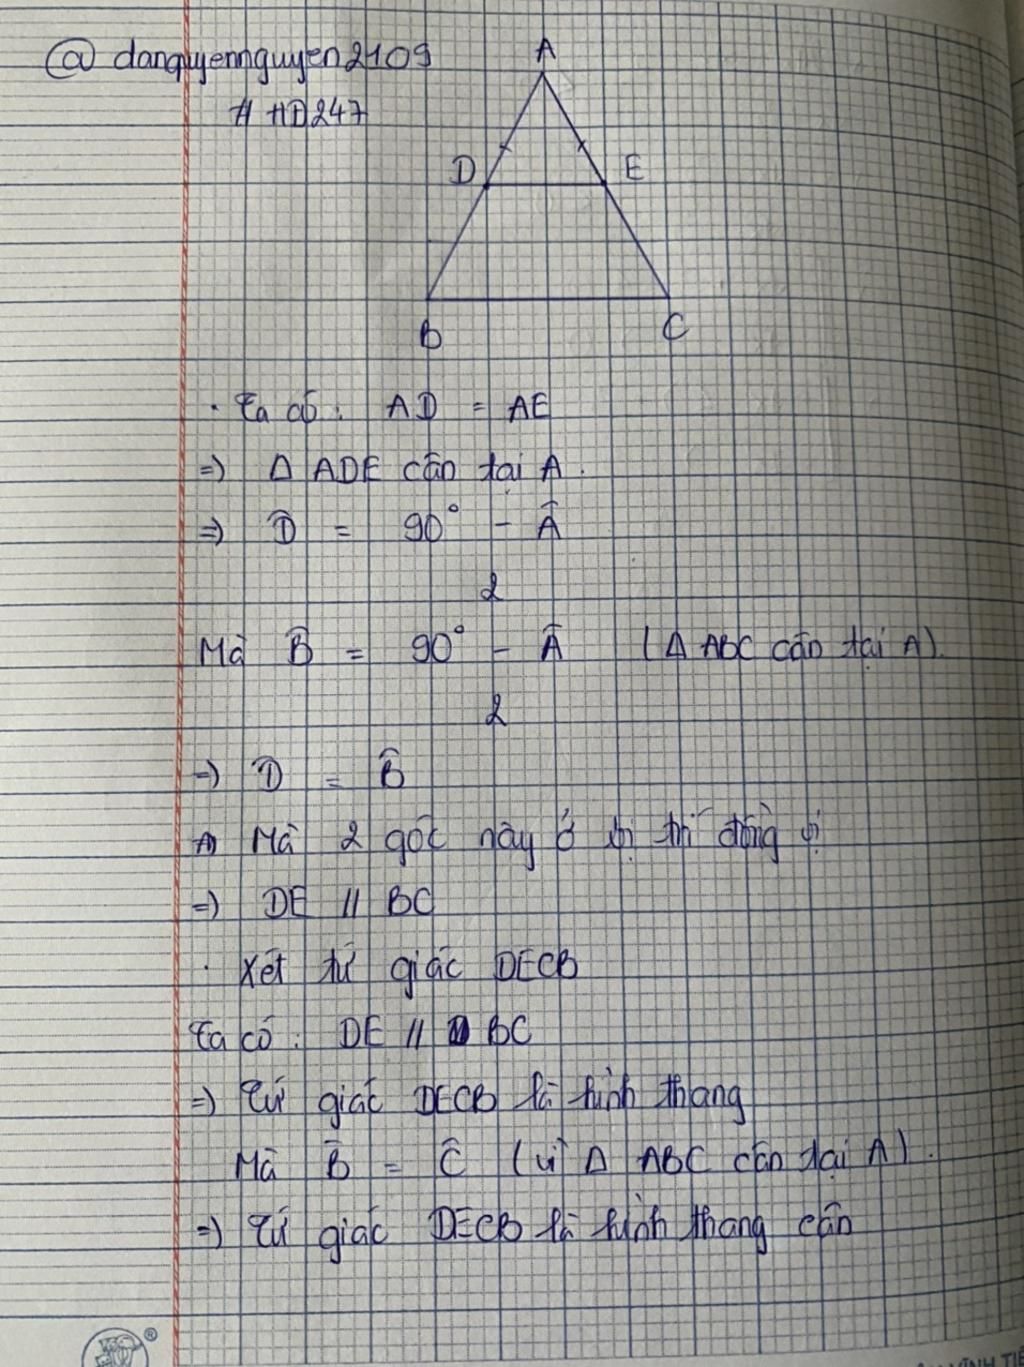 @ danquyennguyen2109
# HD247
A
D
E
B
C
· Ta có: AD = AE
=) Δ ADE cân tại A.
=) D̂ = 90° - Â
2
Mà B̂ = 90° - Â (Δ ABC cân tại A).
2
=) D̂ = B̂
Mà 2 góc này ở vị trí đồng vị
=) DE // BC
· Xét tứ giác DECB
Ta có: DE // BC
=) Tứ giác DECB là hình thang
Mà B̂ = Ĉ (vì Δ ABC cân tại A).
=) Tứ giác DECB là hình thang cân
®